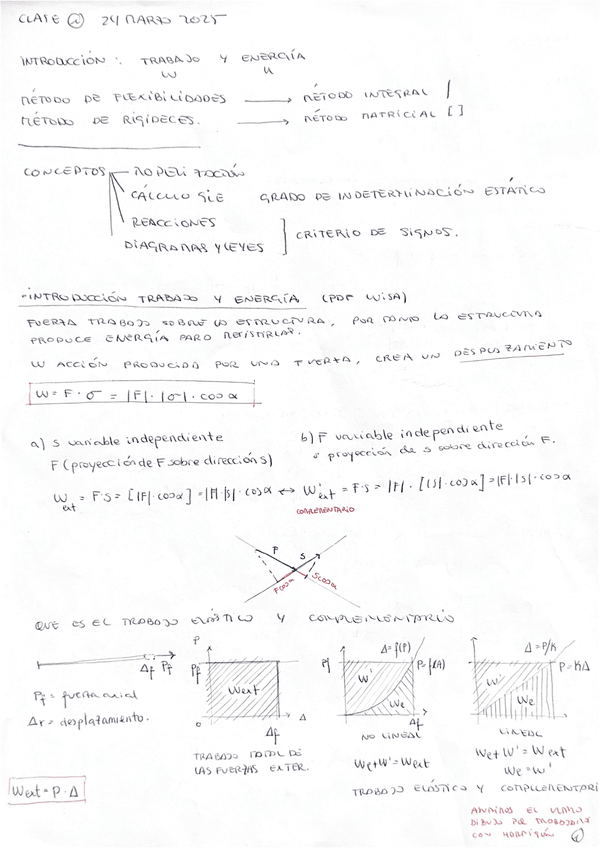 CLASE 1 24 MARZO 2025
INTRODUCCIÓN: TRABAJO Y ENERGÍA
W U
MÉTODO DE FLEXIBILIDADES → MÉTODO INTEGRAL ∫
MÉTODO DE RIGIDECES. → MÉTODO MATRICIAL [ ]
CONCEPTOS
CÁLCULO GIE GRADO DE INDETERMINACIÓN ESTÁTICO
REACCIONES
DIAGRAMAS Y LEYES ] CRITERIO DE SIGNOS.
INTRODUCCIÓN TRABAJO Y ENERGÍA (PDF WISA)
FUERZA TRABAJO SOBRE LA ESTRUCTURA, POR TANTO LA ESTRUCTURA
PRODUCE ENERGÍA PARA RESISTIRLA.
W ACCIÓN PRODUCIDA POR UNA FUERZA, CREA UN DESPLAZAMIENTO
W = F · σ = |F| · |σ| · cos α
a) s variable independiente
F (proyección de F sobre dirección s)
b) F variable independiente
s proyección de s sobre dirección F.
W ext = F·s = [|F|·cosα] = |F|·|s|·cosα ↔ W'ext = F·s = |F|·[|s|·cosα] = |F|·|s|·cosα
COMPLEMENTARIO
P S
Fcosα Scosα
QUE ES EL TRABAJO ELÁSTICO Y COMPLEMENTARIO
Δf Pf
Pf = fuerza axial
Δf = desplazamiento.
P
Pf
Wext
0 Δf Δ
TRABAJO TOTAL DE
LAS FUERZAS EXTER.
Δ=f(P)
Pf P=f(Δ)
W'
We
Δf
NO LINEAL
We+W' = Wext
Δ=P/K
P=KΔ
W'
We
LINEAL
We+W' = Wext
We = W'
Wext = P·Δ
TRABAJO ELÁSTICO Y COMPLEMENTARI
EL
DIBUJO POR
CON HORMIGÓN